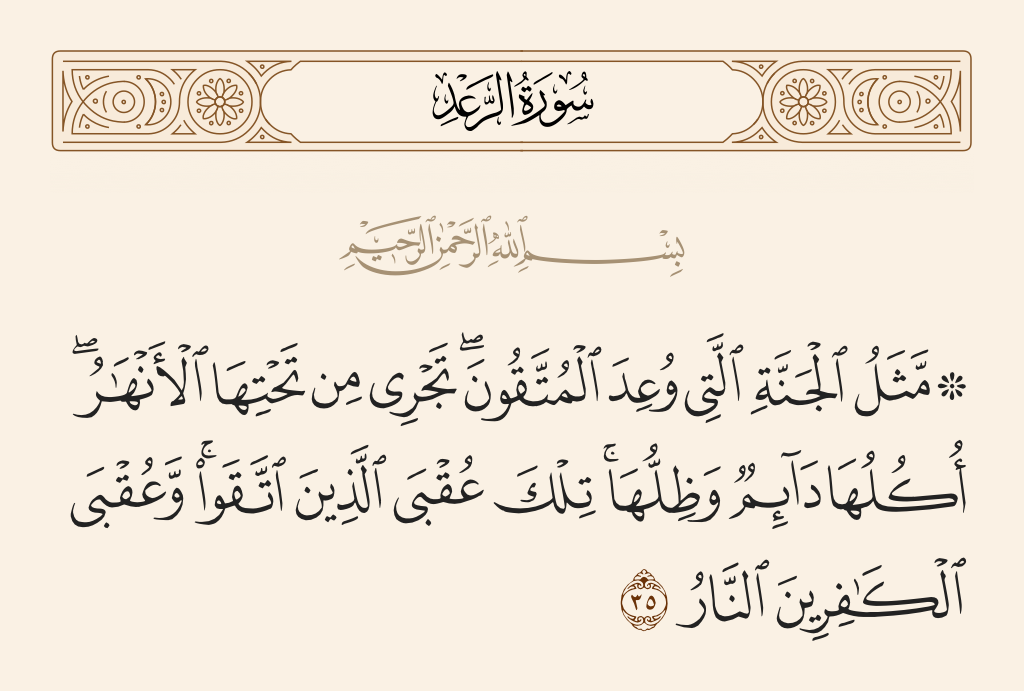 سُورَةُ الرَّعْدِ
بِسْمِ ٱللَّهِ ٱلرَّحْمَٰنِ ٱلرَّحِيمِ
۞ مَّثَلُ ٱلْجَنَّةِ ٱلَّتِى وُعِدَ ٱلْمُتَّقُونَ ۖ تَجْرِى مِن تَحْتِهَا ٱلْأَنْهَٰرُ ۖ
أُكُلُهَا دَآئِمٌ وَظِلُّهَا ۚ تِلْكَ عُقْبَى ٱلَّذِينَ ٱتَّقَوا۟ ۚ وَّعُقْبَى
ٱلْكَٰفِرِينَ ٱلنَّارُ ٣٥